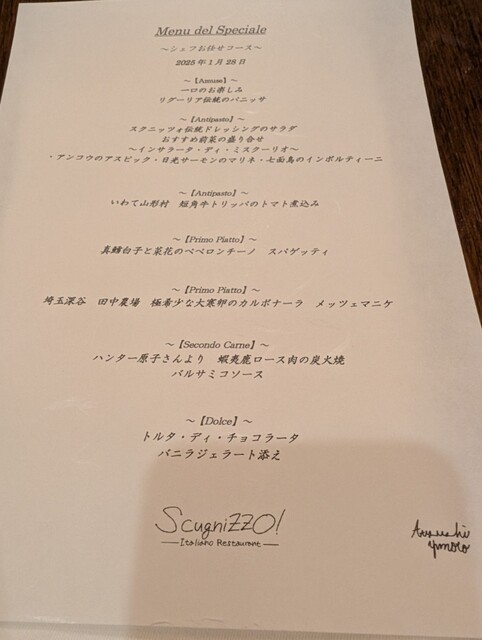 Menu del Speciale
～シェフお任せコース～
2025年1月28日
～【Amuse】～
一口のお楽しみ
リグーリア伝統のパニッサ
～【Antipasto】～
スクニッツォ伝統ドレッシングのサラダ
おすすめ前菜の盛り合せ
～インサラータ・ディ・ミスクーリオ～
・アンコウのアスピック・日光サーモンのマリネ・七面鳥のインボルティーニ
～【Antipasto】～
いわて山形村 短角牛トリッパのトマト煮込み
～【Primo Piatto】～
真鱈白子と菜花のペペロンチーノ スパゲッティ
～【Primo Piatto】～
埼玉深谷 田中農場 極希少な大寒卵のカルボナーラ メッツェマニケ
～【Secondo Carne】～
ハンター原子さんより 蝦夷鹿ロース肉の炭火焼
バルサミコソース
～【Dolce】～
トルタ・ディ・チョコラータ
バニラジェラート添え
ScugnizzO!
Italiano Restaurant